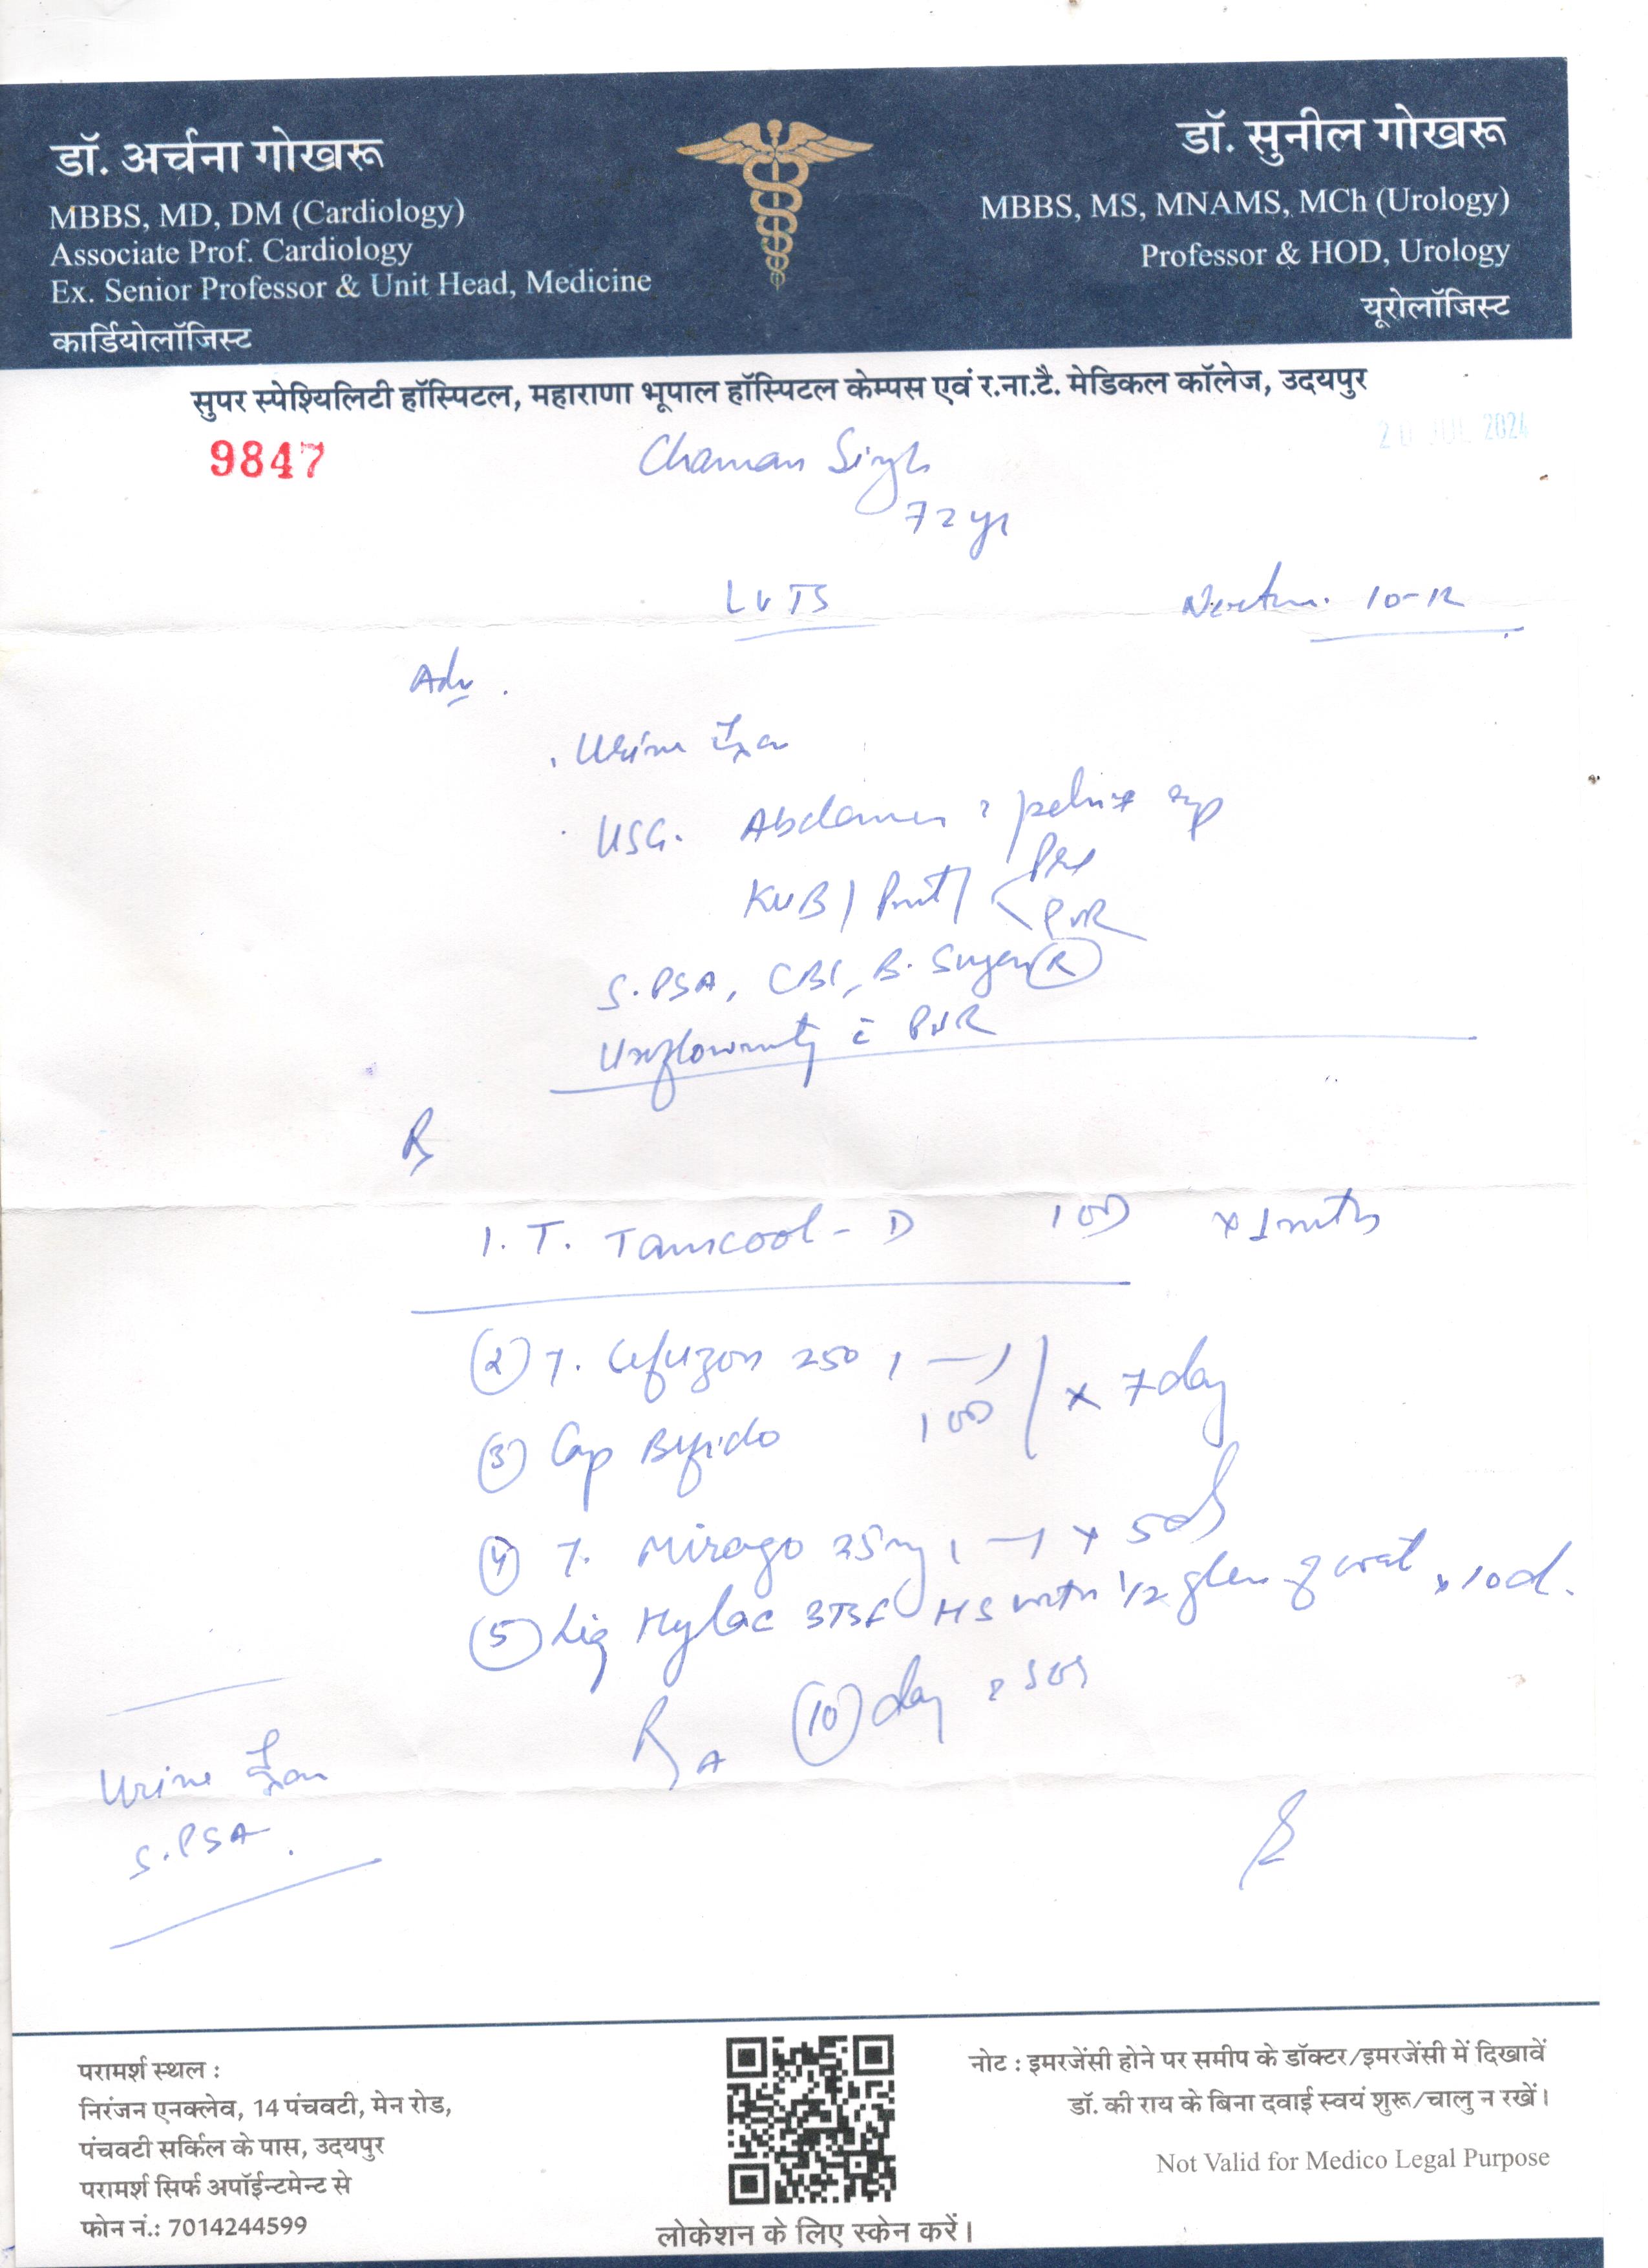 डॉ. अर्चना गोखरू
MBBS, MD, DM (Cardiology)
Associate Prof. Cardiology
Ex. Senior Professor & Unit Head, Medicine
कार्डियोलॉजिस्ट
डॉ. सुनील गोखरू
MBBS, MS, MNAMS, MCh (Urology)
Professor & HOD, Urology
यूरोलॉजिस्ट
सुपर स्पेश्यिलिटी हॉस्पिटल, महाराणा भूपाल हॉस्पिटल केम्पस एवं र.ना.टै. मेडिकल कॉलेज, उदयपुर
9847
JUL 2024
Chaman Singh
72 yr
LUTS
10-12
Adv.
Urine Exa
USG. Abdomen pelvis
KUB / Prost /
PVR
S. PSA, CBC, B. Sugar (R)
Uroflowmetry c̄ PVR
R
1. T. Tamcool-D 1 OD x 1 mth
(2) T. 250 1 — 1
(3) Cap Bifido 1 OD x 7 day
(4) T. 25mg 1 — 1 x 5 d
(5) Liq Mylac 3TSF HS with 1/2 glass of wat x 10 d.
(10) day SOS
Urine Exa
S. PSA.
परामर्श स्थल :
निरंजन एनक्लेव, 14 पंचवटी, मेन रोड,
पंचवटी सर्किल के पास, उदयपुर
परामर्श सिर्फ अपॉईन्टमेन्ट से
फोन नं.: 7014244599
लोकेशन के लिए स्केन करें।
नोट : इमरजेंसी होने पर समीप के डॉक्टर/इमरजेंसी में दिखावें
डॉ. की राय के बिना दवाई स्वयं शुरू/चालु न रखें।
Not Valid for Medico Legal Purpose